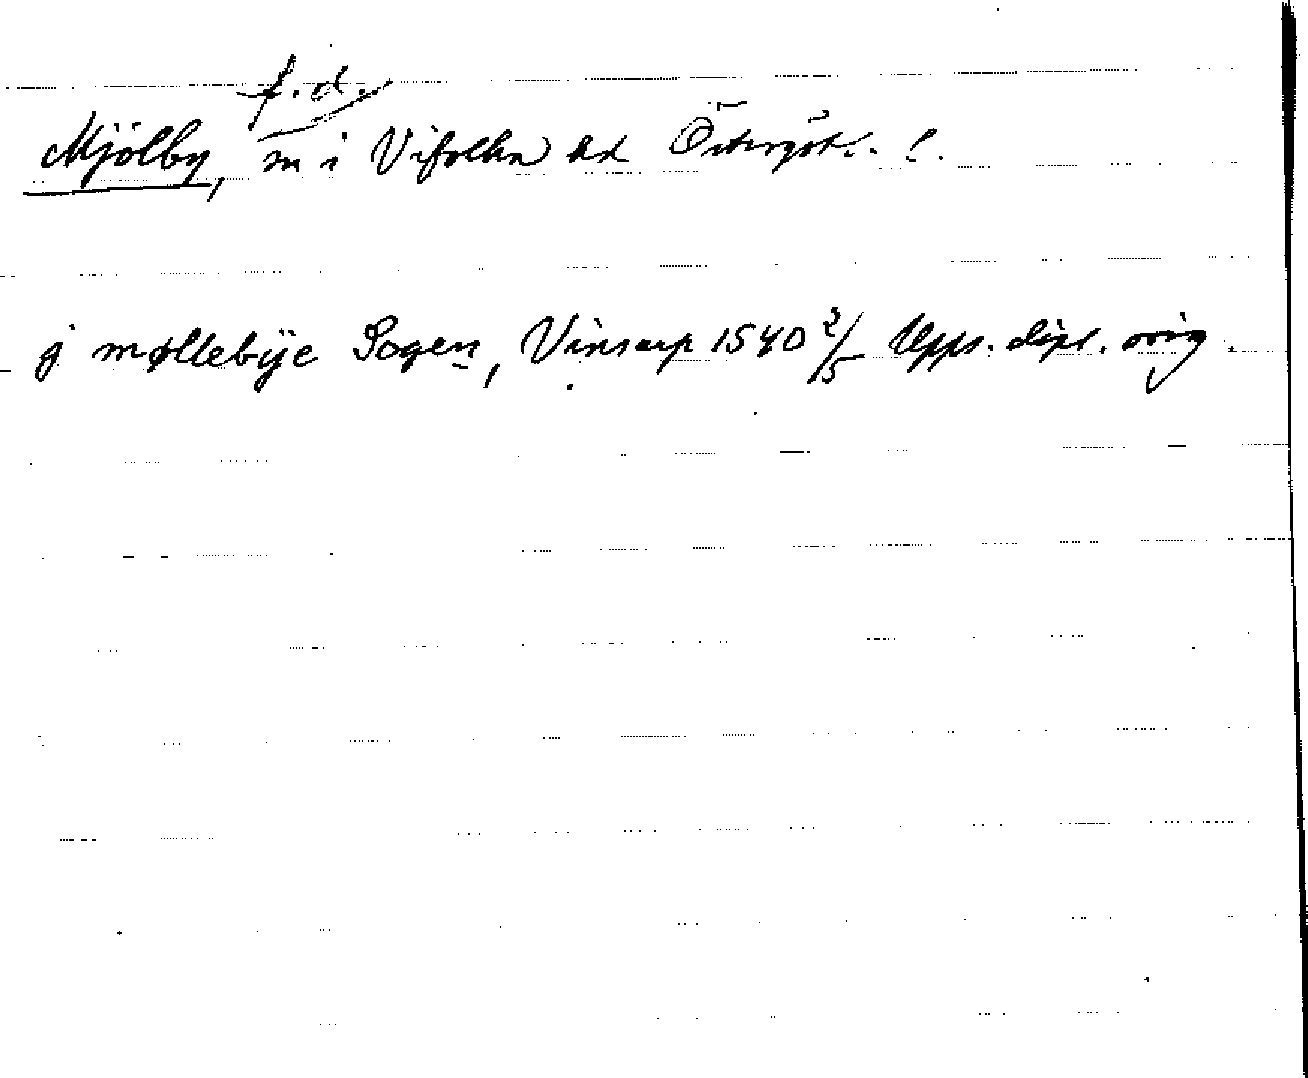 f.d.
Mjölby, sn i Vifolka hd Östergötl. l.
j møllebÿe Sogen, Vinsarp 1540 2/5 Upps. dipl. orig.